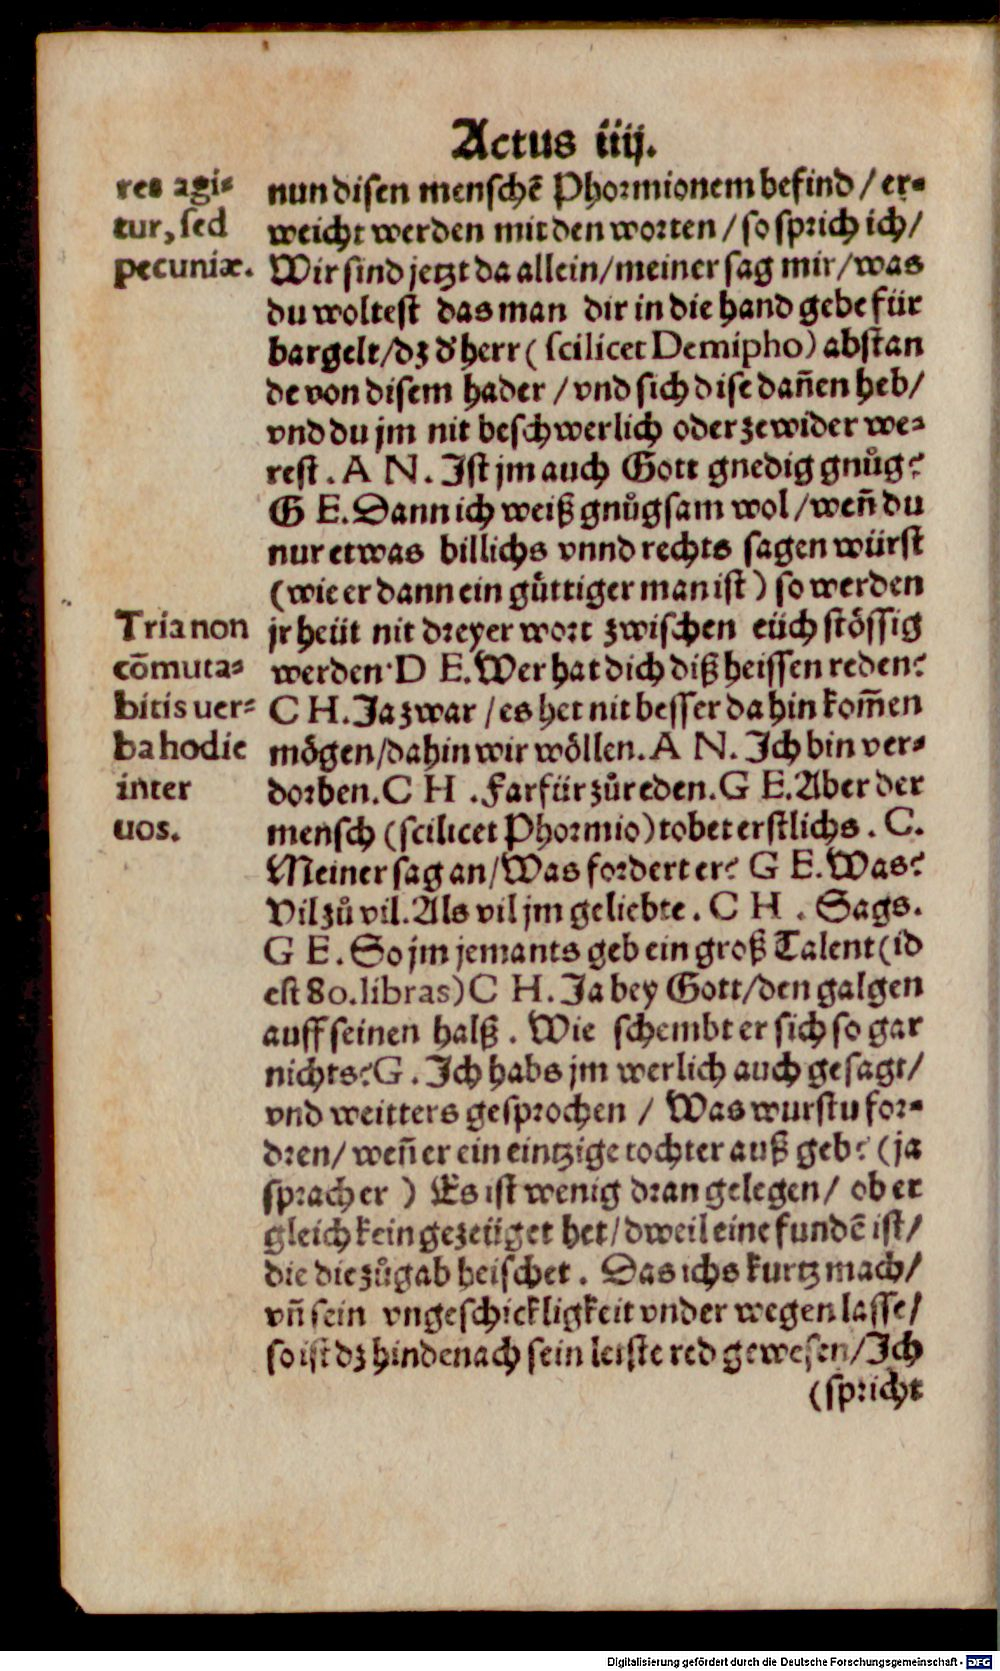 Actus iiij.
res agi⸗
tur, sed
pecuniæ.
nun disen menschē Phormionem befind / er⸗
weicht werden mit den worten / so sprich ich /
Wir sind jetzt da allein / meiner sag mir / was
du woltest das man dir in die hand gebe für
bar gelt / dz d' herr ( scilicet Demipho) abstan
de von disem hader / vnd sich dise dañen heb /
vnd du jm nit beschwerlich oder zewider we⸗
rest. A N. Ist jm auch Gott gnedig gnůg?
G E. Dann ich weiß gnůgsam wol / weñ du
nur etwas billichs vnnd rechts sagen würst
(wie er dann ein gůttiger man ist ) so werden
jr heüt nit dreyer wort zwischen eüch stössig
werden. D E. Wer hat dich diß heissen reden?
C H. Ja zwar / es het nit besser da hin kom̄en
mögen / dahin wir wöllen. A N. Ich bin ver⸗
dorben. C H . Far für zů reden. G E. Aber der
mensch (scilicet Phormio) tobet erstlichs. C.
Meiner sag an / Was fordert er? G E. Was?
Vil zů vil. Als vil jm geliebte. C H . Sags.
G E. So jm jemants geb ein groß Talent (id
est 80. libras) C H. Ja bey Gott / den galgen
auff seinen halß. Wie schembt er sich so gar
nichts? G. Ich habs jm werlich auch gesagt /
vnd weitters gesprochen / Was wurstu for⸗
dren / weñ er ein eintzige tochter auß geb? (ja
sprach er ) Es ist wenig dran gelegen / ob er
gleich kein gezeüget het / dweil eine fundē ist /
die die zůgab heischet. Das ichs kurtz mach /
vñ sein vngeschickligkeit vnder wegen lasse /
so ist dz hindenach sein letste red gewesen / Ich
(spricht
Tria non
cōmuta⸗
bitis uer⸗
ba hodie
inter
uos.
Digitalisierung gefördert durch die Deutsche Forschungsgemeinschaft - DFG